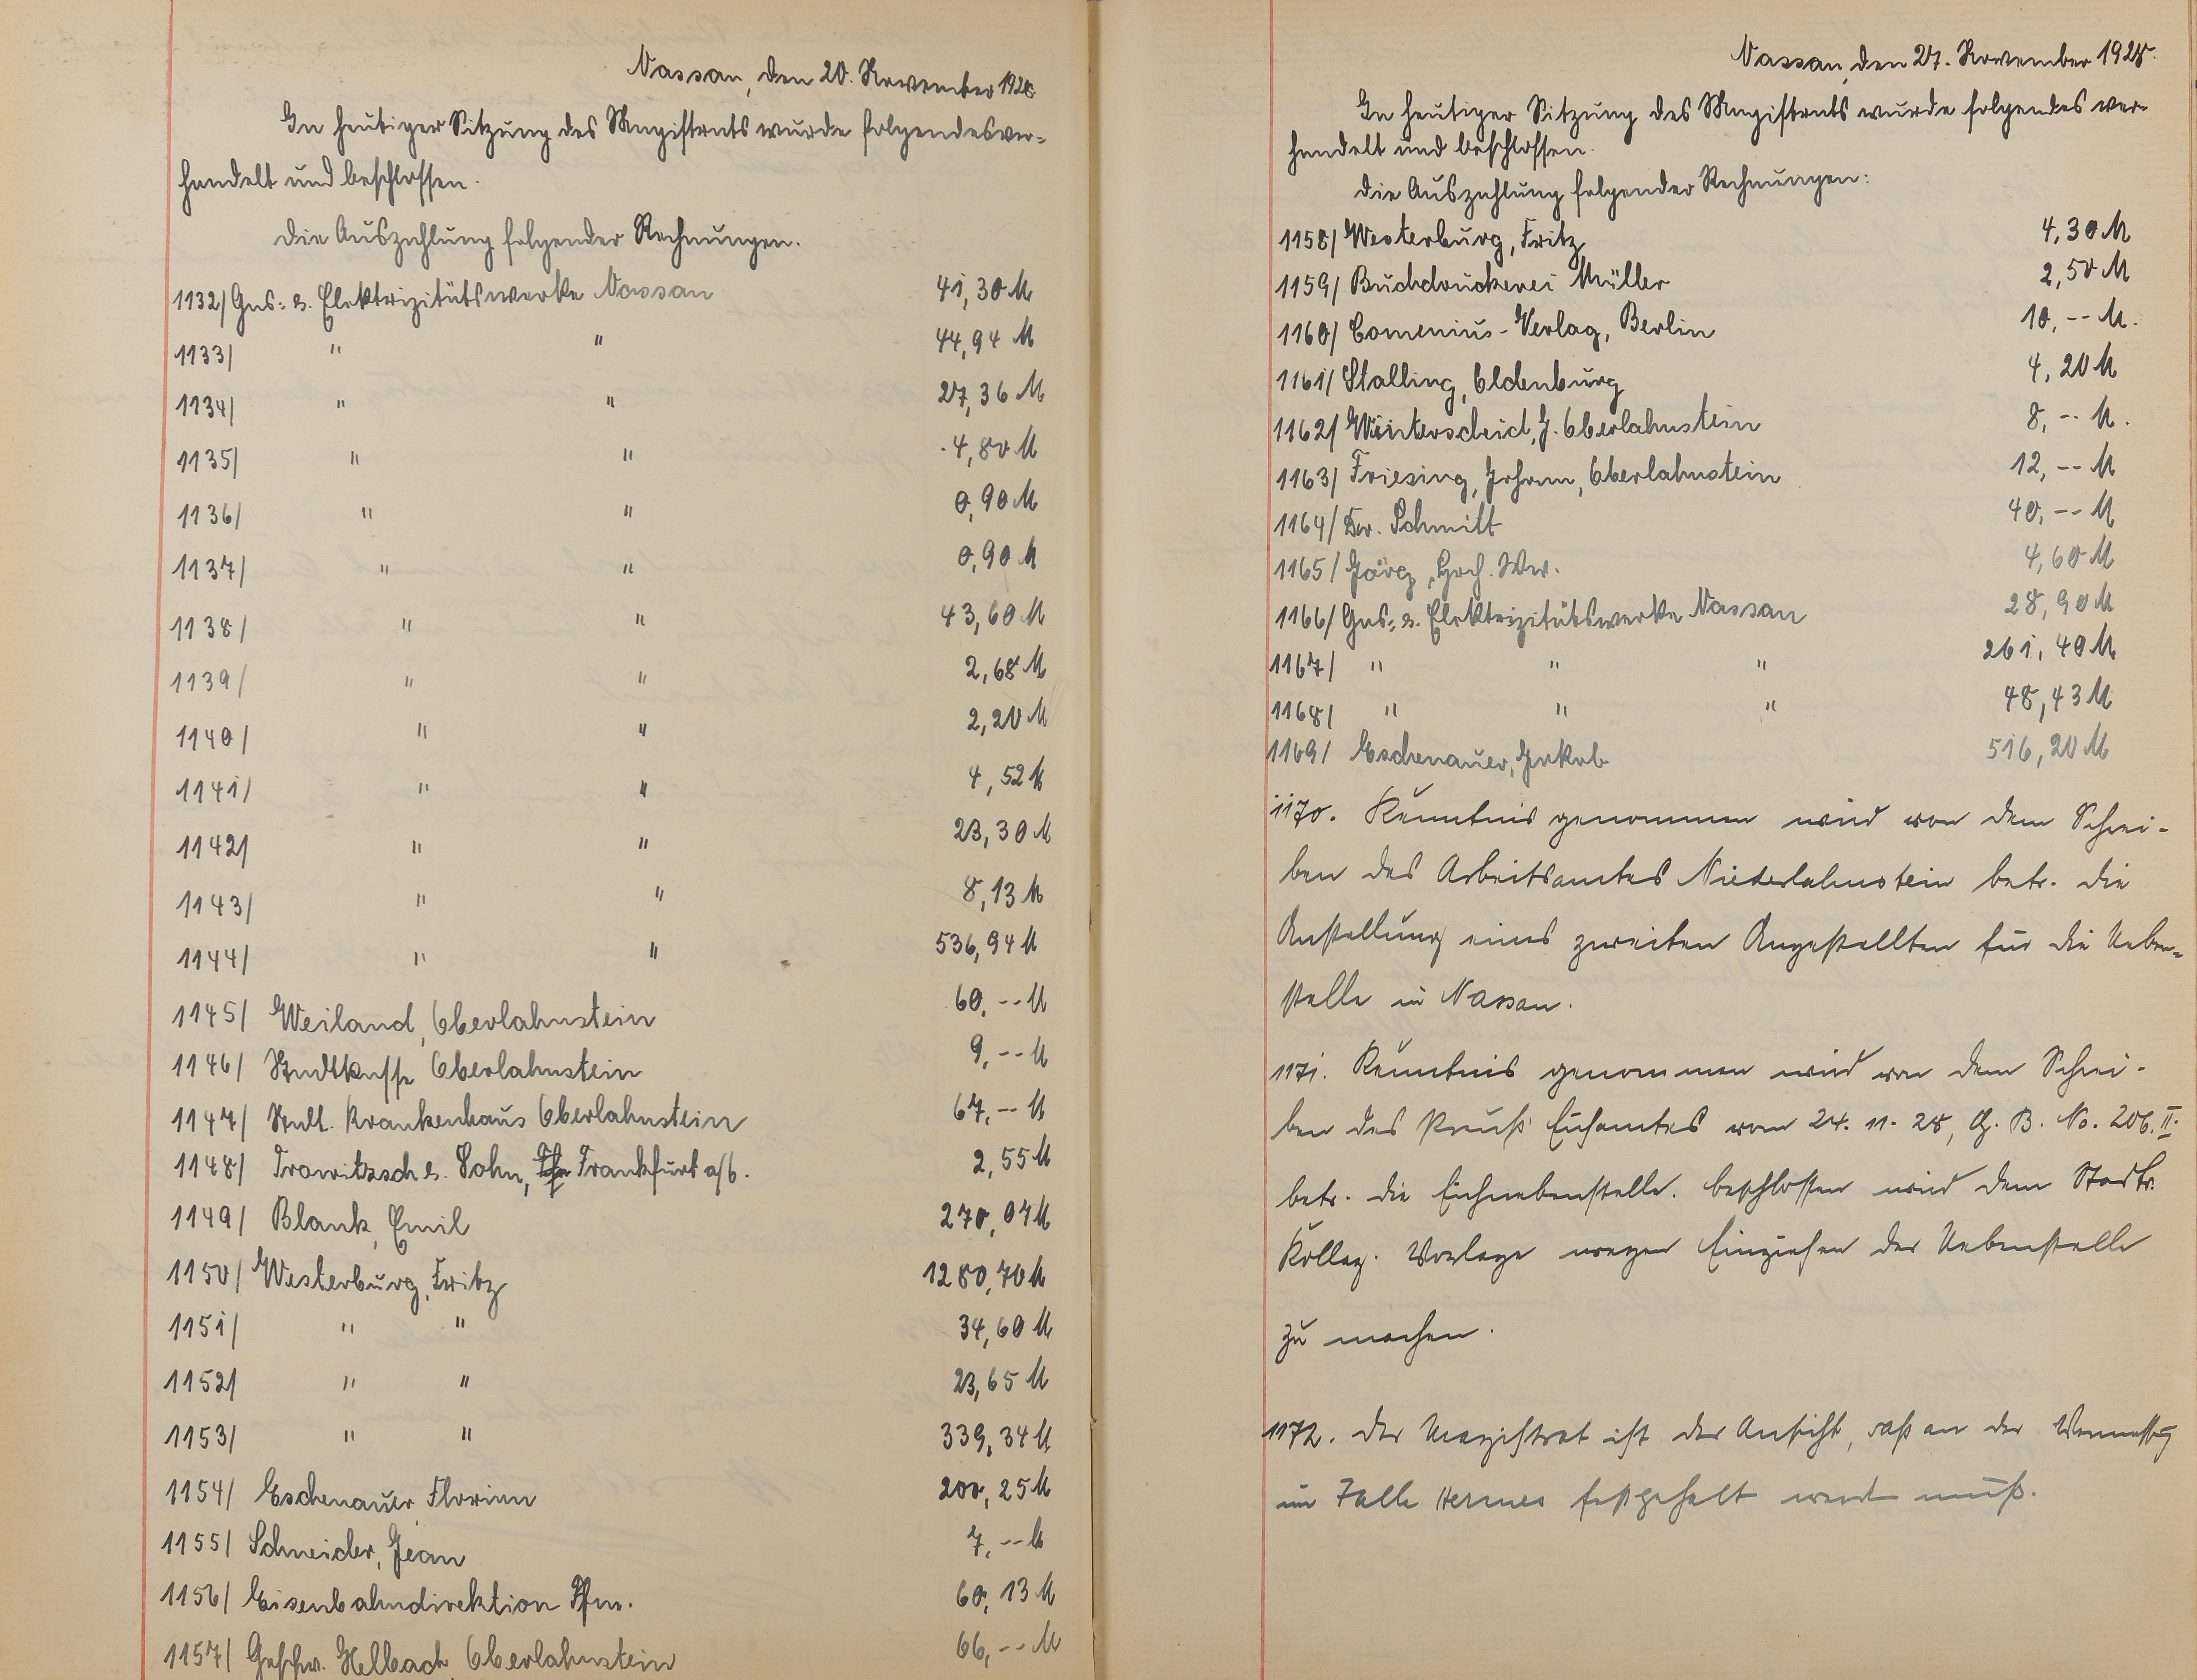 Nassau, den 20. November 1928
In heutiger Sitzung des Magistrats wurde folgendes ver-
handelt und beschlossen.
Die Auszahlung folgender Rechnungen.
1132/ Gas- u. Elektrizitätswerke Nassau 41,30 M
1133/ " " 44,94 M
1134/ " " 27,36 M
1135/ " " 4,80 M
1136/ " " 0,90 M
1137/ " " 0,90 M
1138/ " " 43,60 M
1139/ " " 2,68 M
1140/ " " 2,20 M
1141/ " " 4,52 M
1142/ " " 23,30 M
1143/ " " 8,13 M
1144/ " " 536,94 M
1145/ Weiland, Oberlahnstein 60,-- M
1146/ Stadtkasse Oberlahnstein 9,-- M
1147/ Städt. Krankenhaus Oberlahnstein 67,-- M
1148/ Trowitzsch u. Sohn, Frankfurt a/O. 2,55 M
1149/ Blank, Emil 270,07 M
1150/ Westerburg, Fritz 1280,70 M
1151/ " " 34,60 M
1152/ " " 23,65 M
1153/ " " 339,34 M
1154/ Eschenauer, Florian 200,25 M
1155/ Schneider, Jean 7,-- M
1156/ Eisenbahndirektion Ffm. 60,13 M
1157/ Geschw. Helbach, Oberlahnstein 66,-- M
Nassau, den 27. November 1928.
In heutiger Sitzung des Magistrats wurde folgendes ver-
handelt und beschlossen.
Die Auszahlung folgender Rechnungen:
1158/ Westerburg, Fritz 4,30 M
1159/ Buchdruckerei Müller 2,50 M
1160/ Comenius-Verlag, Berlin 10,-- M.
1161/ Stalling, Oldenburg 4,20 M
1162/ Winterscheid, J. Oberlahnstein 8,-- M.
1163/ Friesing, Johann, Oberlahnstein 12,-- M
1164/ Dr. Schmitt 40,-- M
1165/ Jörg, Ww. 4,60 M
1166/ Gas- u. Elektrizitätswerke Nassau 28,90 M
1167/ " " " 261,40 M
1168/ " " " 48,43 M
1169/ Eschenauer, Jakob 516,20 M
1170. Kenntnis genommen wird von dem Schrei-
ben des Arbeitsamtes Niederlahnstein betr. die
Anstellung eines zweiten Angestellten für die Neben-
stelle in Nassau.
1171. Kenntnis genommen wird von dem Schrei-
ben des Preuß. Eichamtes vom 24. 11. 28, G. B. No. 206. II.
betr. die Eichnebenstelle. beschlossen wird dem Stadtv.
Kolleg. Vorlage wegen Einziehen der Nebenstelle
zu machen.
1172. Der Magistrat ist der Ansicht, daß an der
im Falle Hermes festgehalt werd muß.